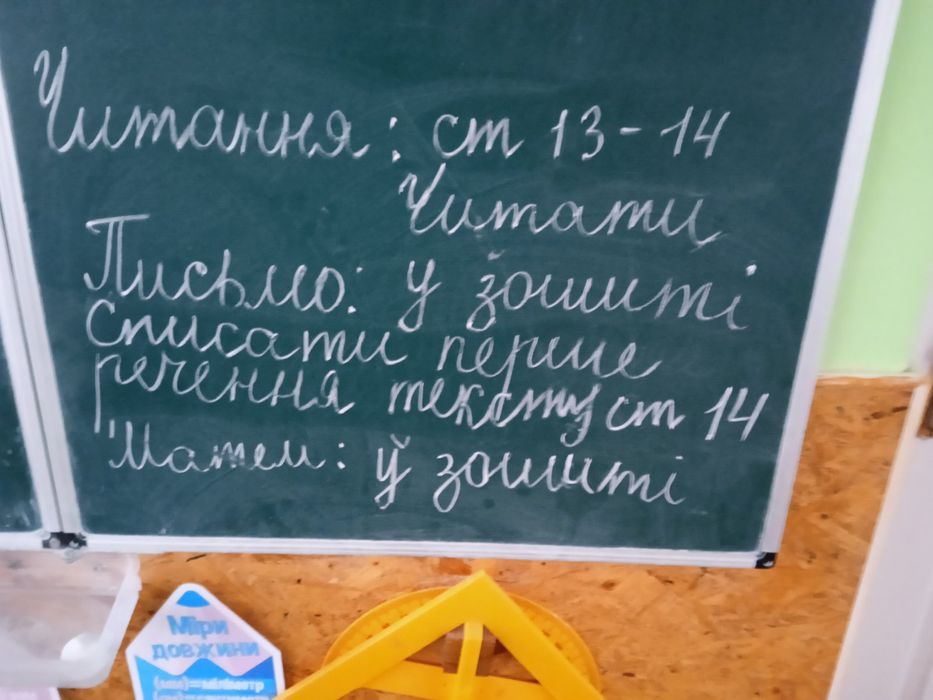 Читання: ст 13-14
Читати
Письмо: у зошиті
списати перше
речення тексту ст 14
Матем: у зошиті
Міри
довжини
(мм)=міліметр